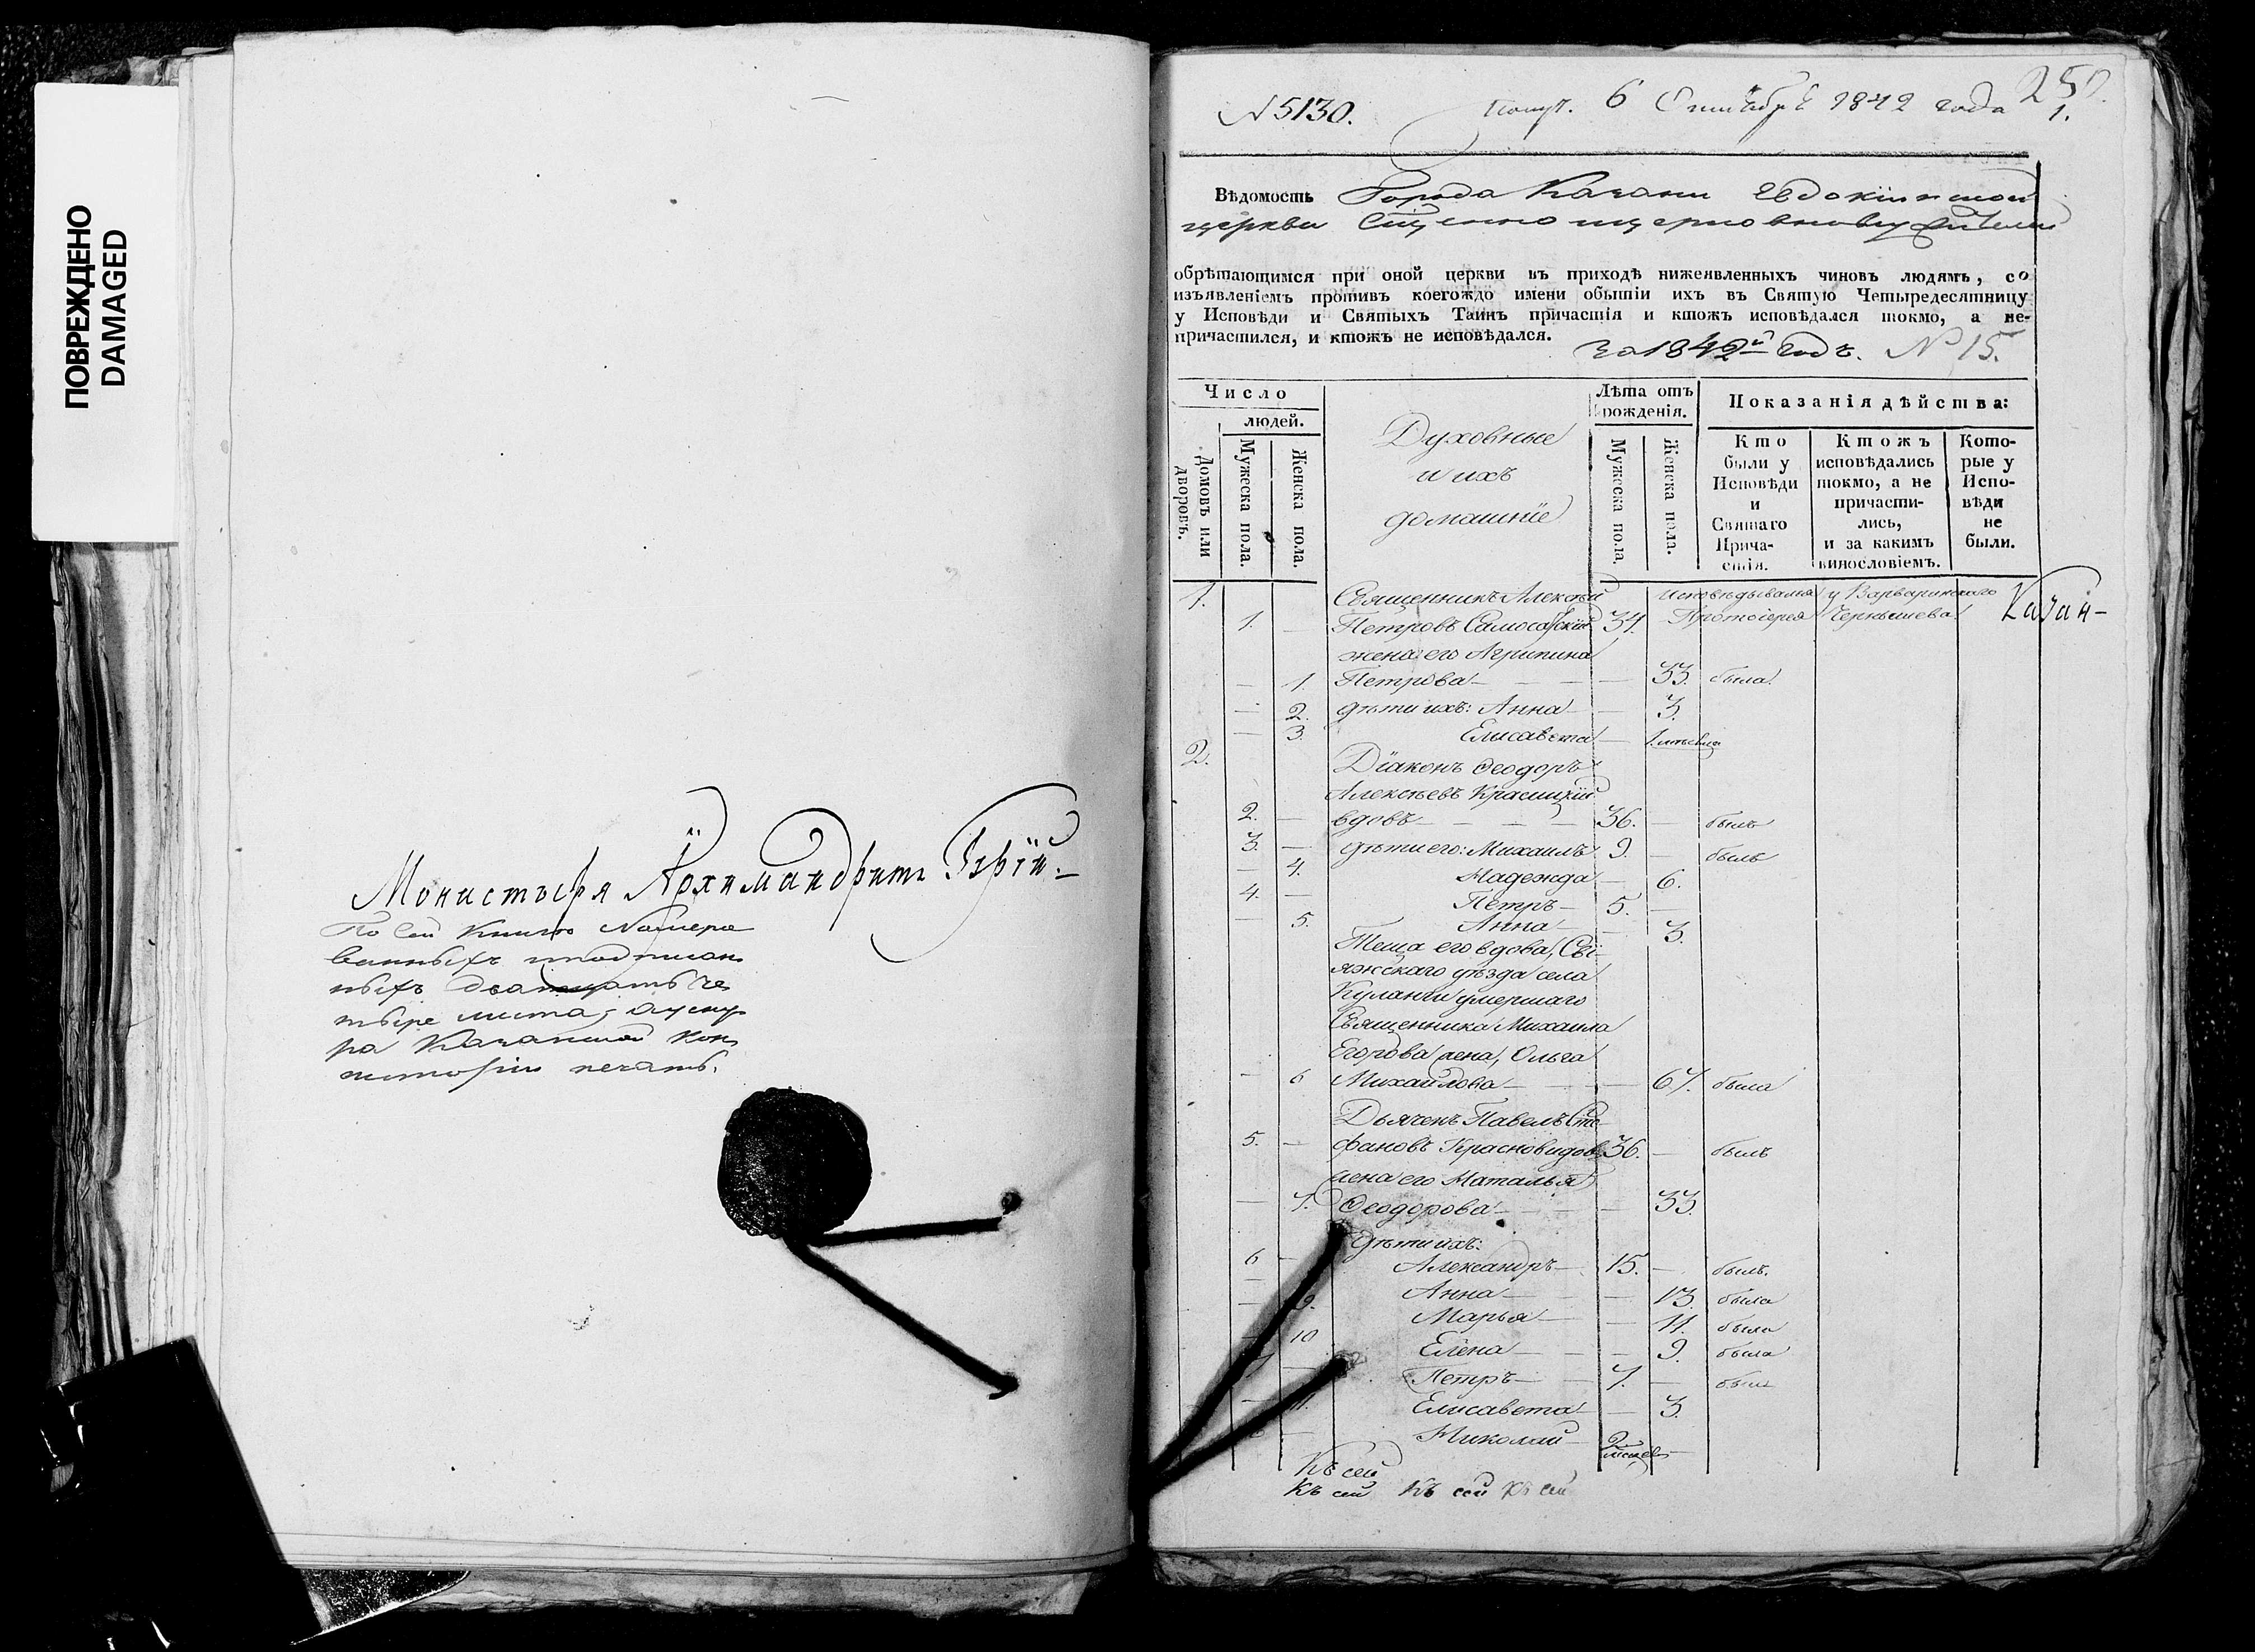 ПОВРЕЖДЕНО
DAMAGED
Монистыря Архимандритъ Гурій.
По сей книге Номеро
ванныхъ и подписан
ныхъ дватцать че
тыре листа,
ра Казанской кон
систоріи печать.
N 5130.
получ. 6 Октября 1842 года
1.
Вѣдомость Города Казани Евдокіинской
церкви Сщенно церковнослужители
обрѣтающимся при оной церкви въ приходѣ нижеявленныхъ чиновъ людямъ, со
изъявленіемъ противъ коегождо имени обытіи ихъ въ Святую Четыредесятницу
у Исповѣди и Святыхъ Таинъ причастія и ктожъ исповѣдался токмо, а не-
причастился, и ктожъ не исповѣдался.
за 1842й годъ. № 15.
Число
людей.
Домовъ или дворовъ.
Мужеска пола.
Женска пола.
Духовные
и ихъ
домашніе
Лѣта отъ
рожденія.
Мужеска пола.
Женска пола.
Показанія дѣйства:
Кто
были у
Исповѣди
и
Святаго
Прича-
стія.
Ктожъ
исповѣдались
токмо, а не
причасти-
лись,
и за какимъ
винословіемъ.
Кото-
рые у
Испо-
вѣди
не
были.
1. Священникъ Алексѣй исповѣдывался у Варваринскаго
1. — Петровъ Самосатскій 34. Протоіерея Чернышева. Казан-
жена его Агрипина
— 1. Петрова — — 33. была.
— 2. дѣти ихъ: Анна — 3.
— 3. Елисавета — 1. мѣсяца
2. Діаконъ Ѳеодоръ
Алексѣевъ Красицкій
2. — вдовъ — 36. — былъ
3. — дѣти его: Михаилъ 9. — былъ
— 4. Надежда — 6.
4. — Петръ — 5. —
— 5. Анна — 3.
Теща его вдова, Сві-
яжскаго уѣзда села
Куланги умершаго
Священника Михаила
Егорова жена, Ольга
— 6 Михайлова — — 67. была
Дьячекъ Павелъ Сте
5. — фановъ Красновидовъ 36. — былъ
жена его Наталья
— 7. Ѳеодорова — — 33.
дѣти ихъ:
6 — Александръ — 15. — былъ.
— Анна — — 13. была
— 9. Марья — — 11. была
— 10 Елена — — 9. была
7 — Петръ — 7. — былъ
— 11. Елисавета — — 3.
Николай — 2 мѣсяцев —
Къ сей
Къ сей Къ сей Къ сей